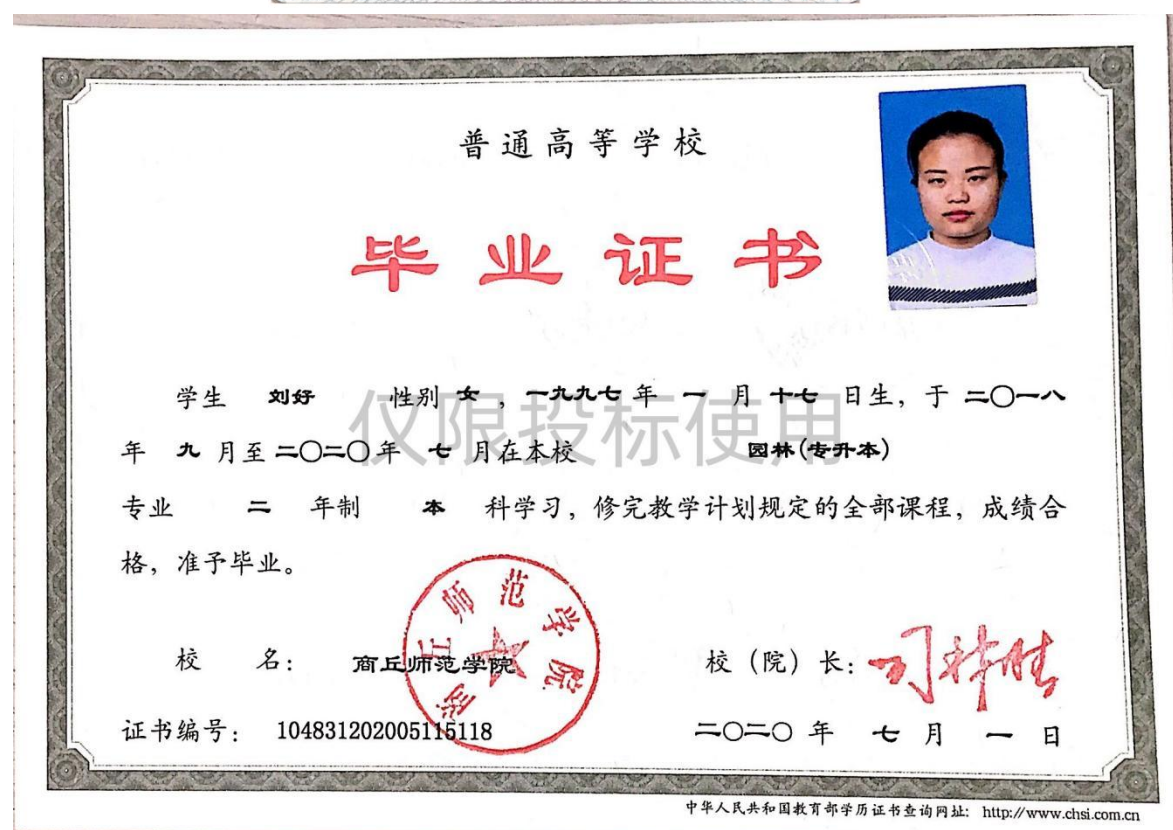 普通高等学校
毕业证书
学生 刘好 性别 女，一九九七年 一 月 十七 日生，于 二〇一八
年 九 月至 二〇二〇年 七 月在本校 园林(专升本)
专业 二 年制 本 科学习，修完教学计划规定的全部课程，成绩合
格，准予毕业。
仅限投标使用
校 名： 商丘师范学院
商丘师范学院
校（院）长：
证书编号： 104831202005115118
二〇二〇 年 七 月 一 日
中华人民共和国教育部学历证书查询网址: http://www.chsi.com.cn